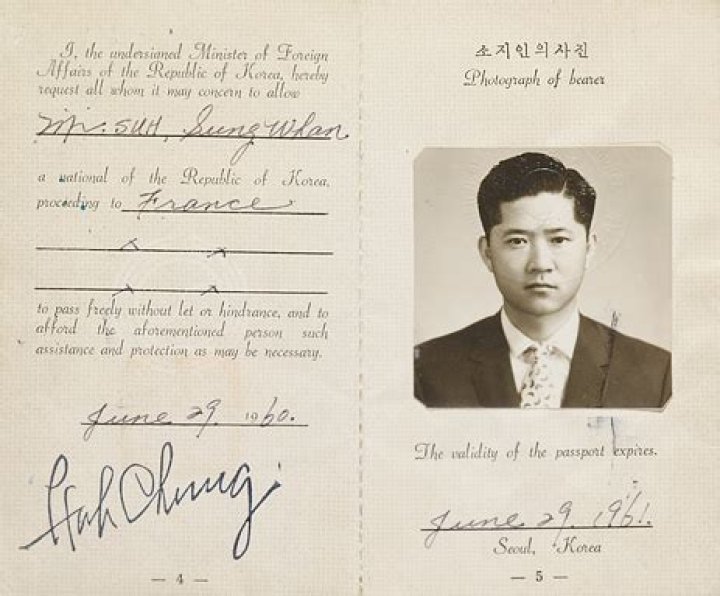 I, the undersigned Minister of Foreign
Affairs of the Republic of Korea, hereby
request all whom it may concern to allow
Mr. SUH, Sung Whan
a national of the Republic of Korea,
proceeding to France
to pass freely without let or hindrance, and to
afford the aforementioned person such
assistance and protection as may be necessary.
June 29. 1960.
Huh Chung
— 4 —
소지인의사진
Photograph of bearer
The validity of the passport expires.
June 29. 1961.
Seoul, Korea
— 5 —